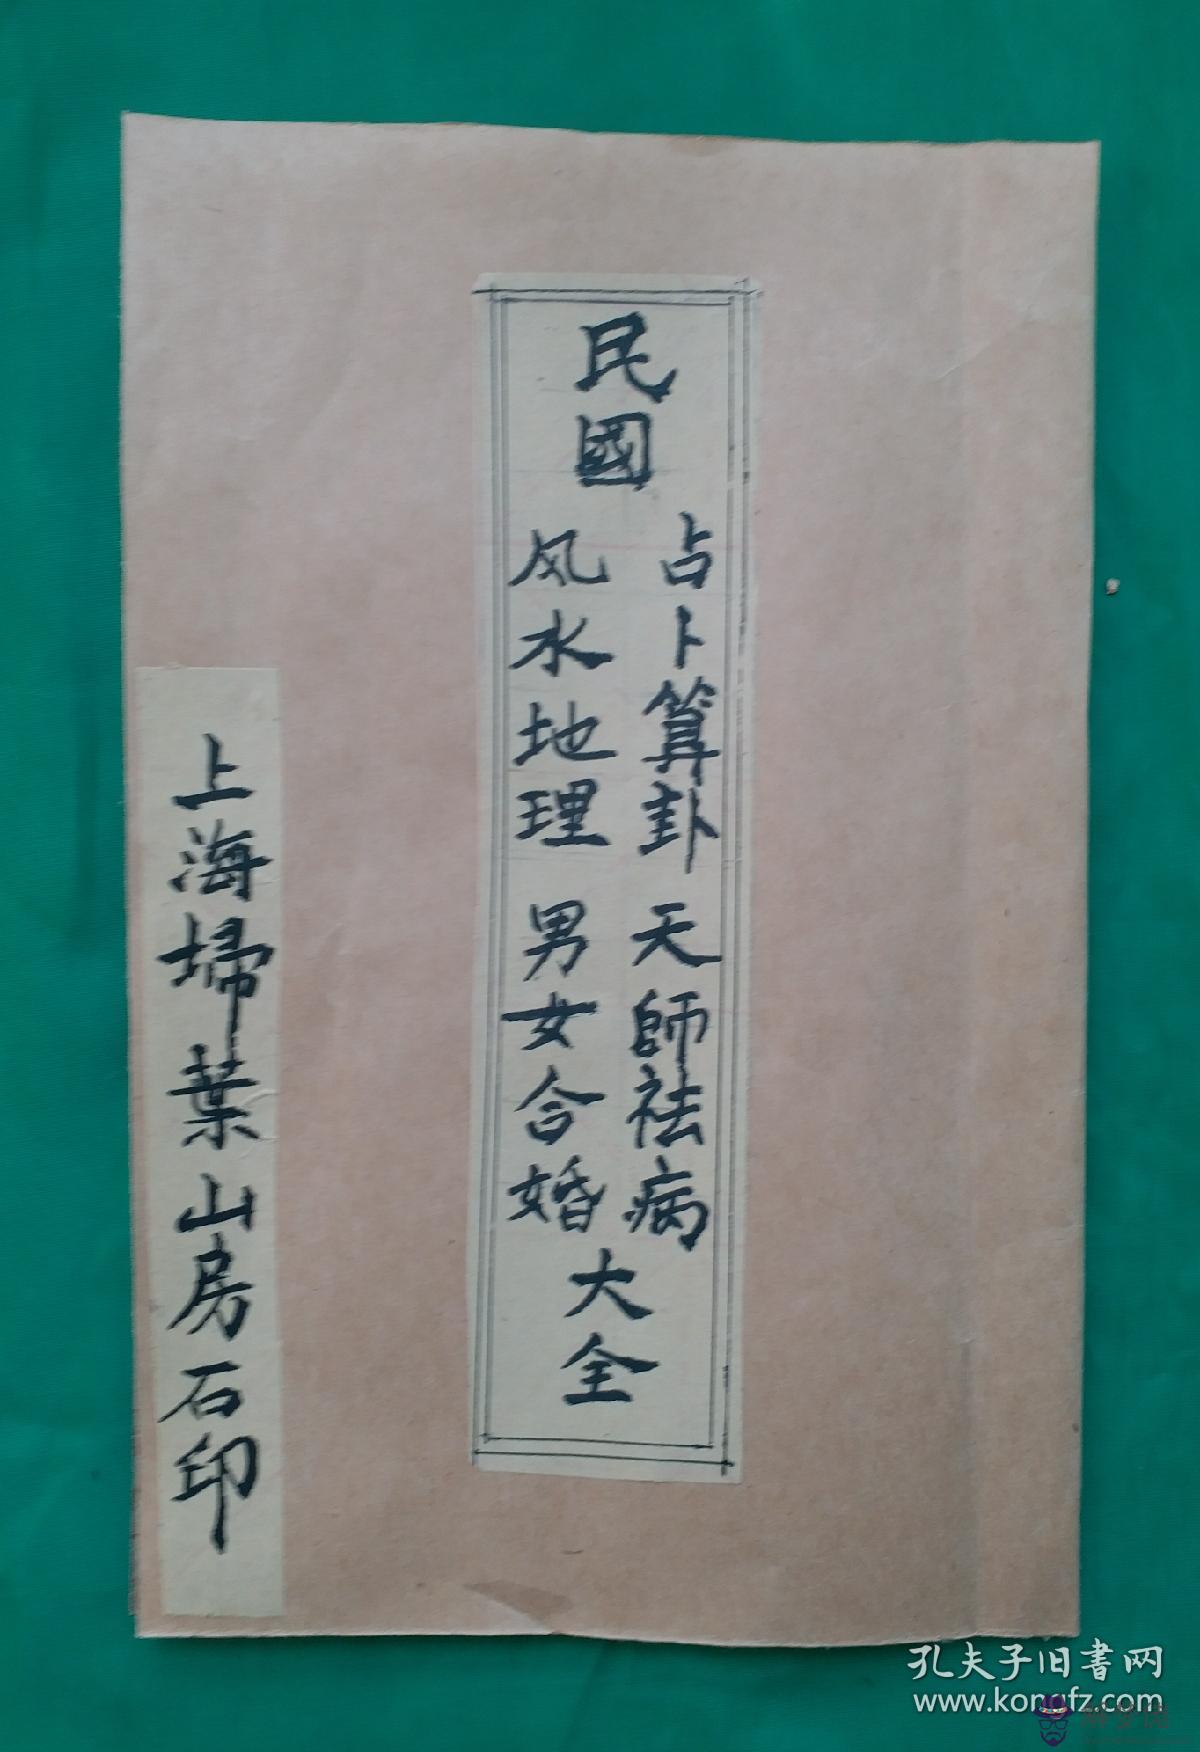 民國
占卜算卦 天師祛病
风水地理 男女合婚
大全
上海埽葉山房石印
孔夫子旧書网
www.kongfz.com